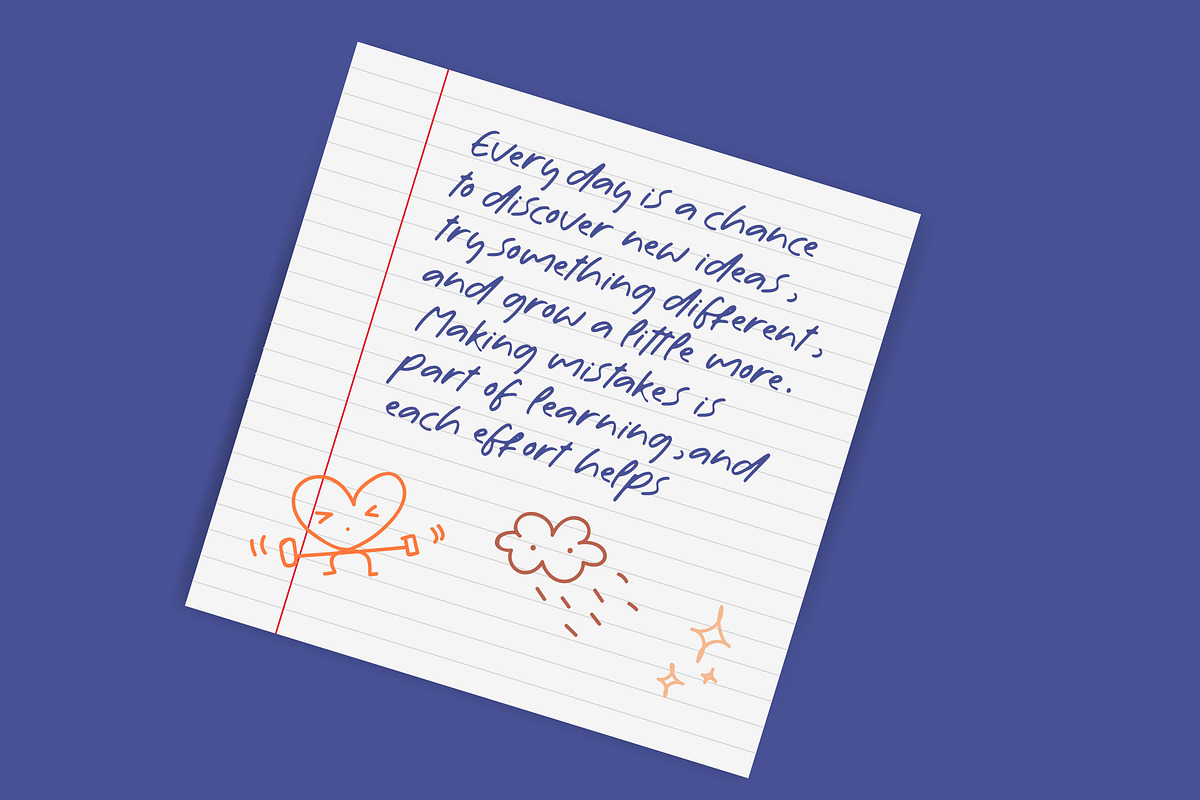 Every day is a chance
to discover new ideas,
try something different,
and grow a little more.
Making mistakes is
part of learning, and
each effort helps